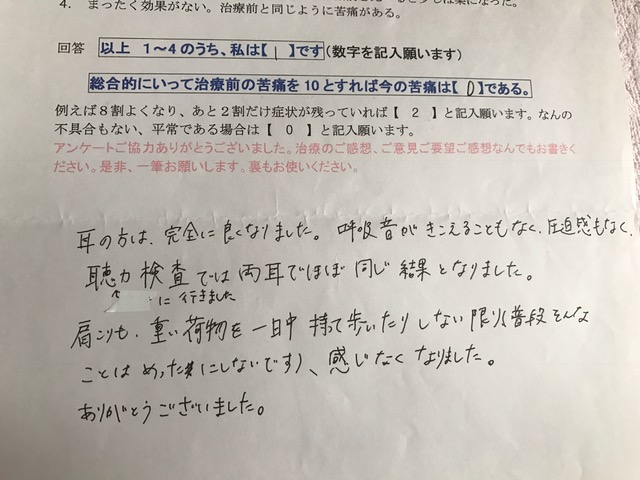 4. まったく効果がない。治療前と同じように苦痛がある。
回答 以上 1～4のうち、私は【 1 】です(数字を記入願います)
総合的にいって治療前の苦痛を10とすれば今の苦痛は【 0 】である。
例えば8割よくなり、あと2割だけ症状が残っていれば【 2 】と記入願います。なんの
不具合もない、平常である場合は【 0 】と記入願います。
アンケートご協力ありがとうございました。治療のご感想、ご意見ご要望ご感想なんでもお書きく
ださい。是非、一筆お願いします。裏もお使いください。
耳の方は、完全に良くなりました。呼吸音がきこえることもなく、圧迫感もなく、
聴力検査では両耳でほぼ同じ結果となりました。
↑ に行きました
肩こりも、重い荷物を一日中持って歩いたりしない限り(普段そんな
ことはめったにしないです)、感じなくなりました。
ありがとうございました。